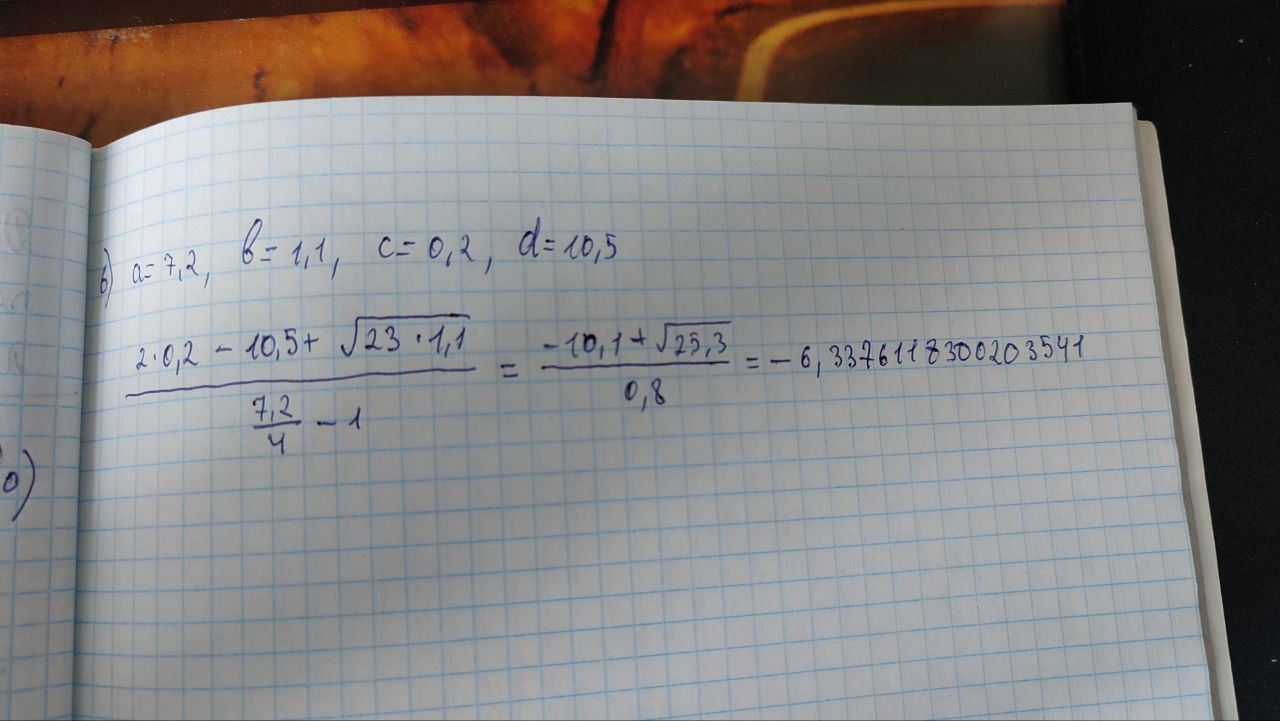 б) a=7,2, b=1,1, c=0,2, d=10,5
(2·0,2 - 10,5 + √(23·1,1)) / (7,2/4 - 1) = (-10,1 + √(25,3)) / 0,8 = -6,3376118300203541
0)